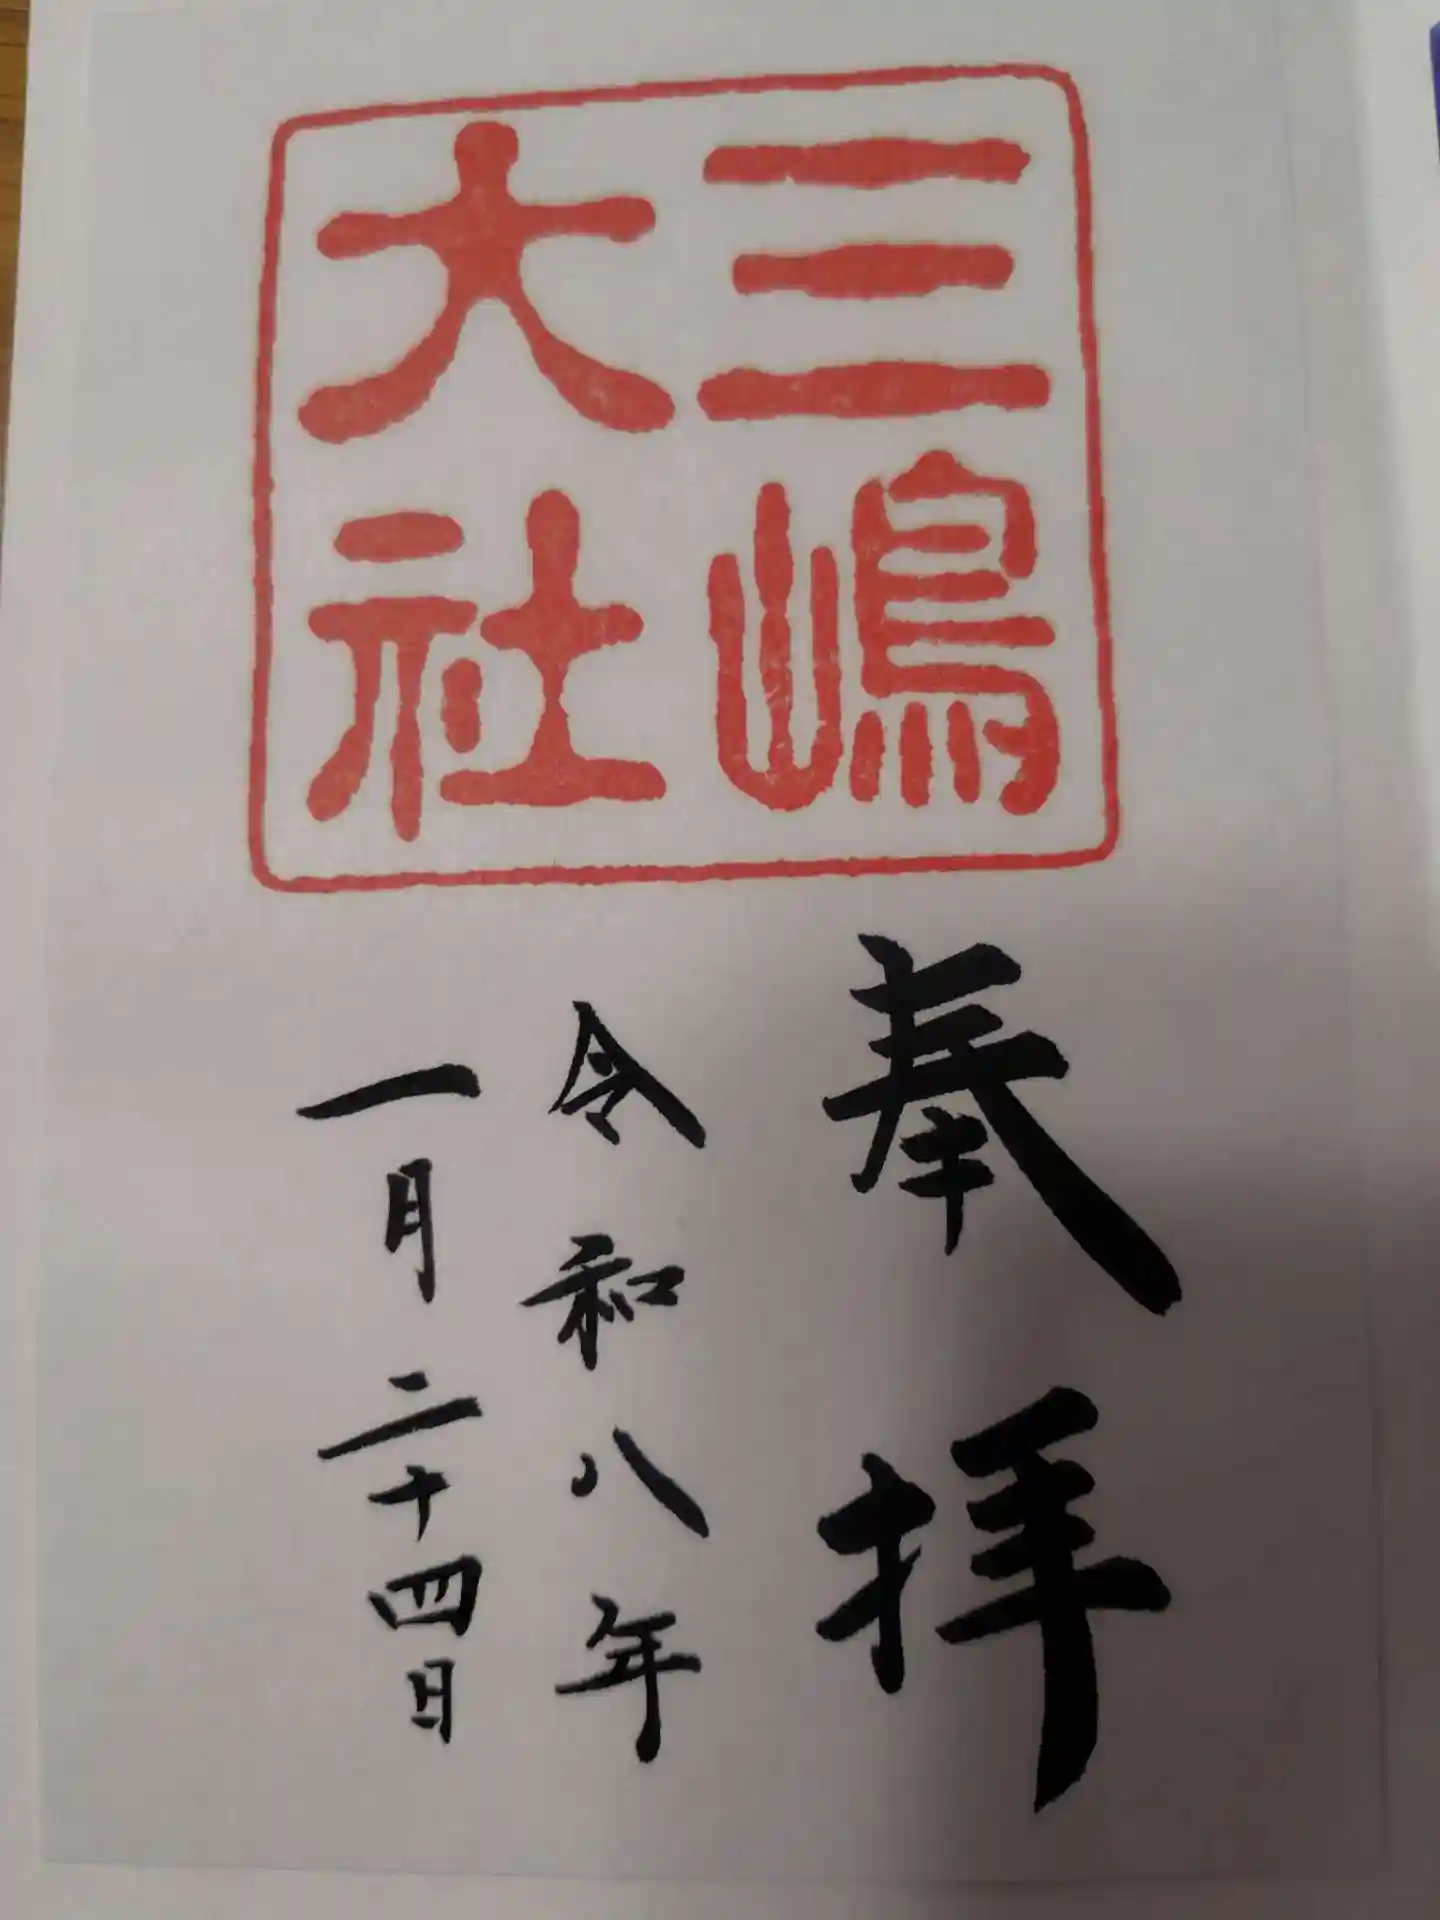 三嶋
大社
奉拝
令和八年
一月二十四日